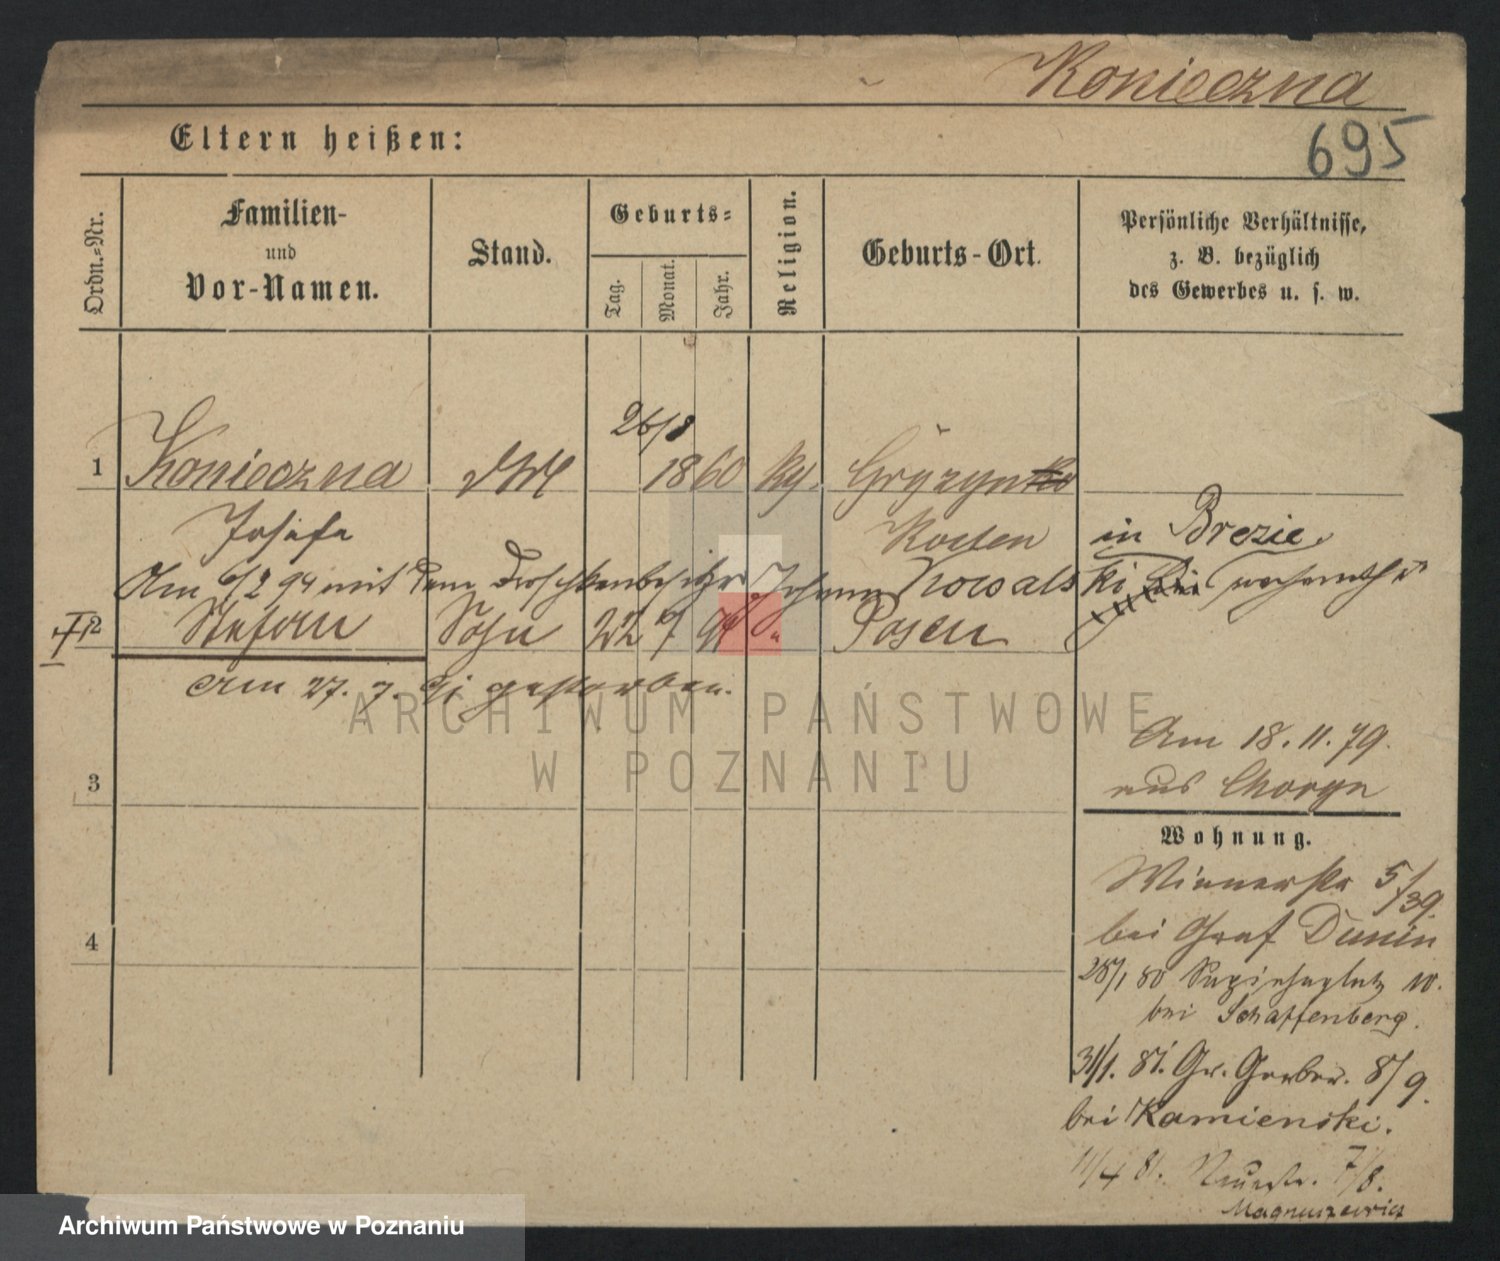 Konieczna
695
Eltern heißen:
Ordn.-Nr.
Familien-
und
Vor-Namen.
Stand.
Geburts-
Tag.
Monat.
Jahr.
Religion.
Geburts-Ort.
Persönliche Verhältnisse,
z. B. bezüglich
des Gewerbes u. s. w.
26/8
1 Konieczna 1860 Gryzyn
Josefa Kosten in Brezie
Am 6/2 94 mit dem Droschkenbesitzer Johann Kowalski
2 Stefan Sohn 22 7 Posen
Am 27. 7. gestorben.
ARCHIWUM PAŃSTWOWE
W POZNANIU
Am 18. 11. 79.
aus
3
Wohnung.
Wienerstr 5/39.
bei Graf Dunin
4
28/1 80 Sapiehaplatz 10.
bei Schaffenberg.
31/1. 81. Gr. Gerber. 8/9.
bei Kamienski.
11/4 81. Neuestr. 7/8.
Magnuszewicz
Archiwum Państwowe w Poznaniu